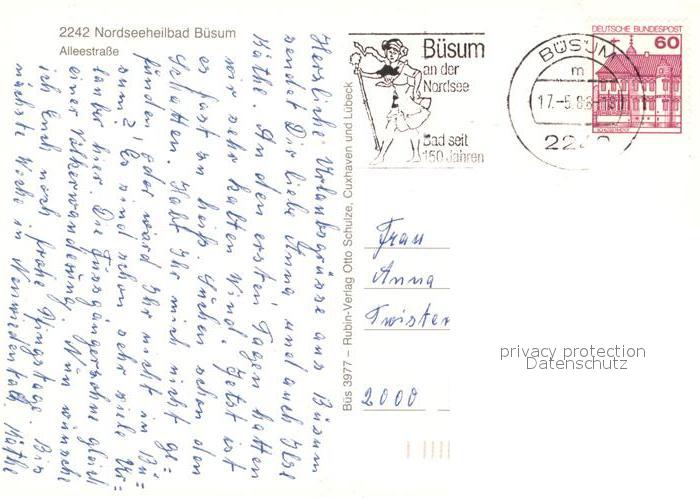 2242 Nordseeheilbad Büsum
Alleestraße
Herzliche Urlaubsgrüsse aus Büsum
sendet Dir liebe Anna und auch Ilse
Käthe. An den ersten Tagen hatten
wir sehr kalten Wind. Jetzt ist
es fast zu heiß. Suchen schon den
Schatten. Habt Ihr mich nicht ge=
funden, oder ward Ihr nicht in Bü=
sum? Es sind schon sehr viele Ur=
lauber hier. Die Fussgängerzone gleich
einer Völkerwanderung. Nun wünsche
ich Euch noch frohe Pfingstage. Bin
nächste Woche in Neuwiedenthal. Käthe
Büs 3977 – Rubin-Verlag Otto Schulze, Cuxhaven und Lübeck
Büsum
an der
Nordsee
Bad seit
150 Jahren
BÜSUM
m
17.-5.86-18
2242
DEUTSCHE BUNDESPOST
60
Frau
Anna
Twister
2000
privacy protection
Datenschutz